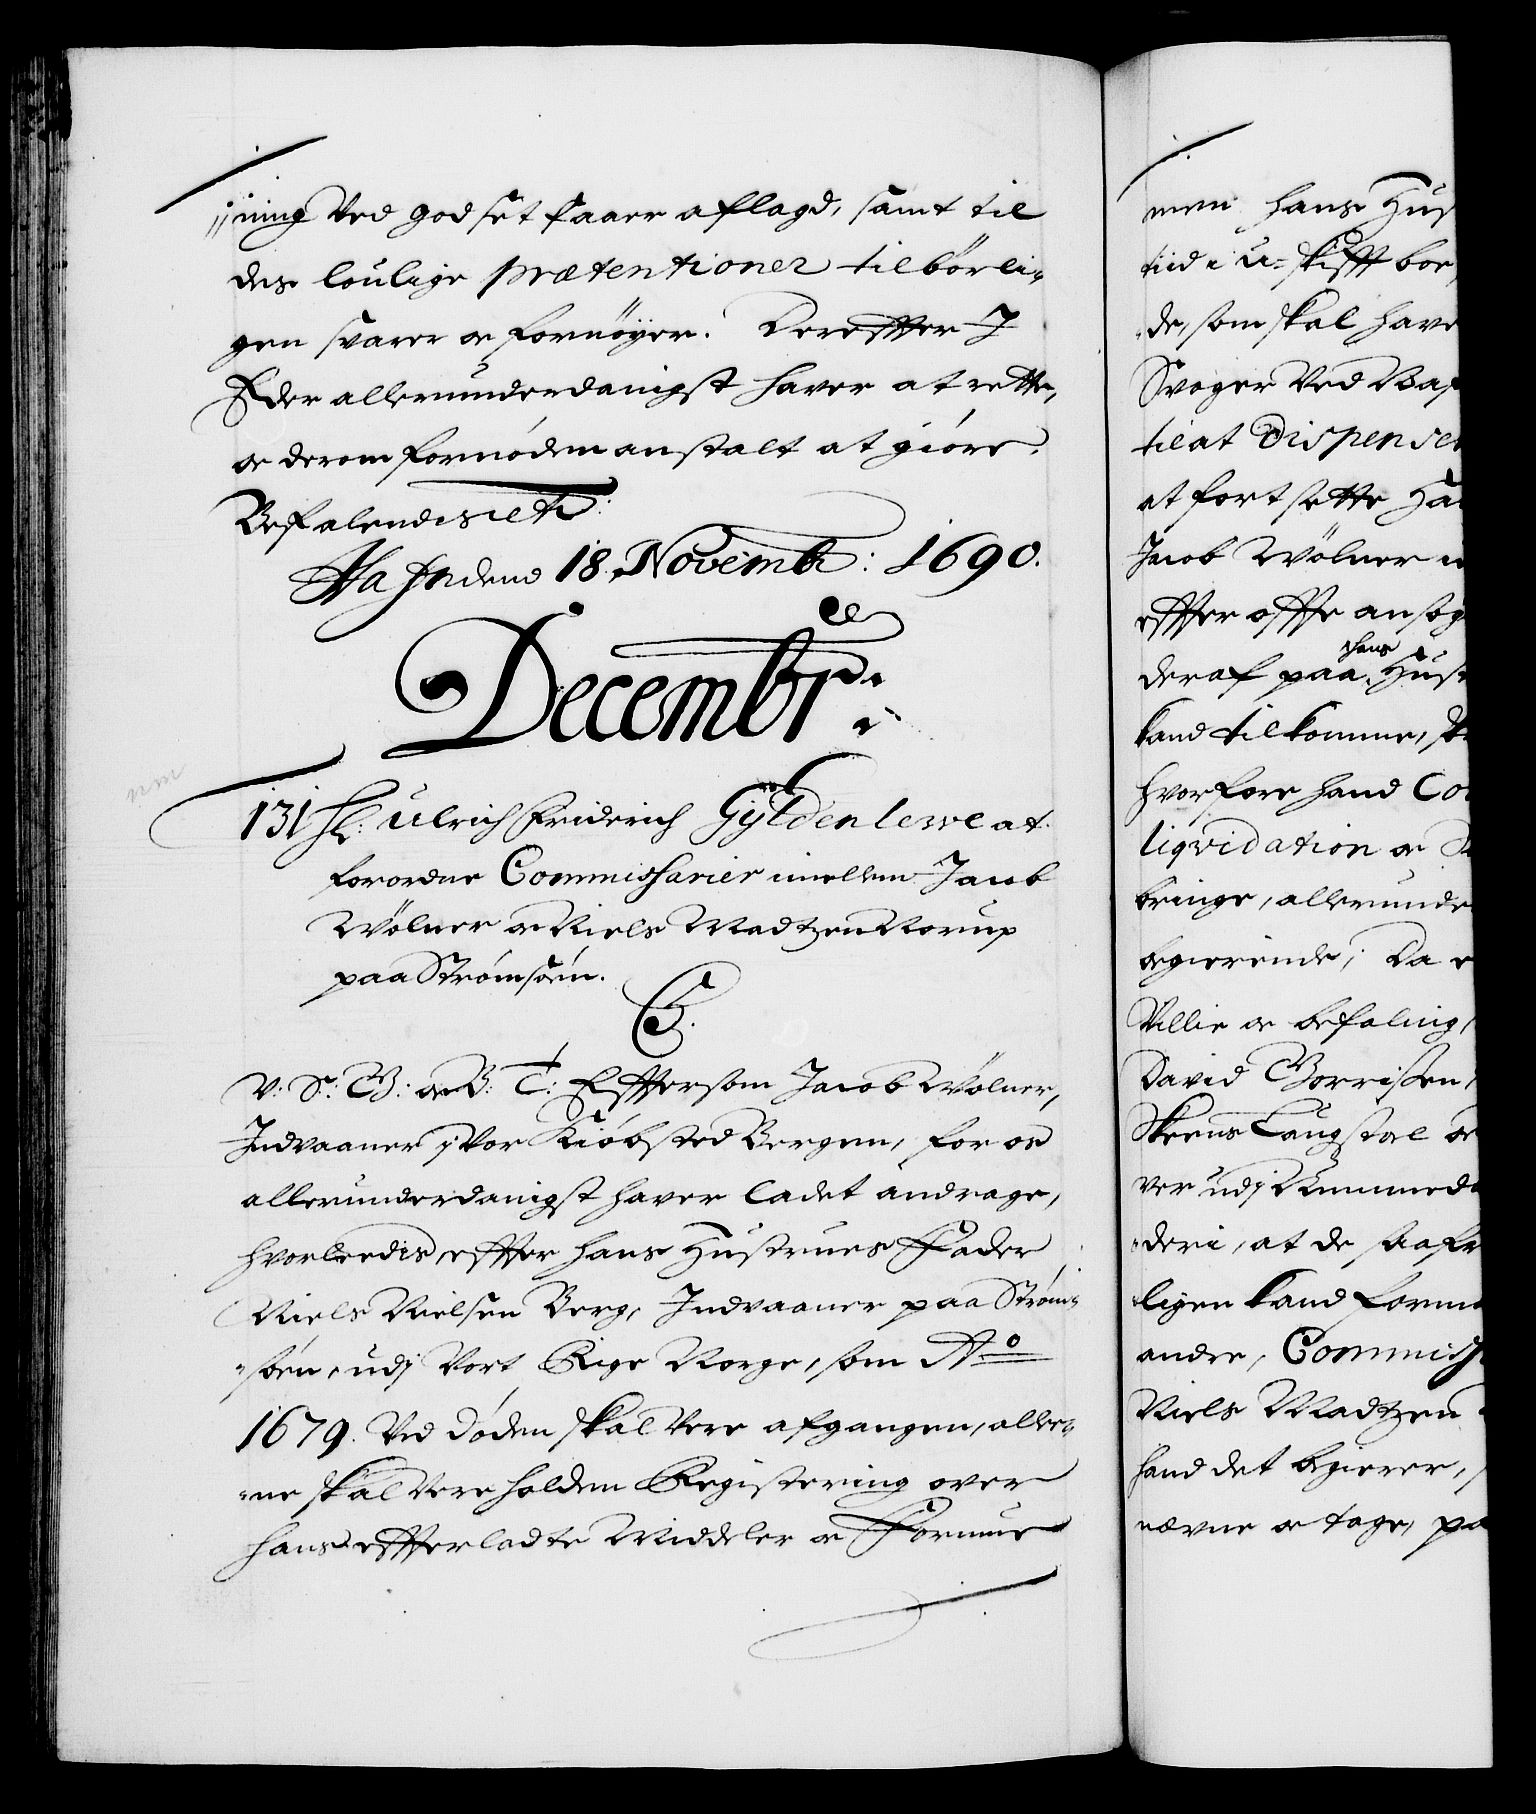 ning ved godset faaer aflagd, samt til
des loulige prætentioner tilbørli-
gen svarer oc fornøyer. Dereffter I
Eder allerunderdanigst haver at rette,
oc derom fornøden anstalt at giøre.
Befalendis etc:
Hafn dend 18. Novembr: 1690.
Decembr:
131 H: Ulrich Friderich Gyldenlewe at
forordne Commissarier imellem Jacob
Wølner oc Niels Madtzen Norup
paa Strømsøen.
C5.
V: S: G: oc B: T: Efftersom Jacob Wølner,
Indvaaner i Vor Kiøbsted Bergen, for os
allerunderdanigst haver ladet andrage,
hvorleedis, effter hans Hustrues Fader
Niels Nielsen Berg, Indvaaner paa Strøm-
søen, udj Vort Rige Norge, som Ao
1679. Ved døden skal være afgangen, alle-
ne skal være holden Registering over
hans effterladte Middeler oc Formue
men hans Hus
tiid i u-skifft boe,
de, som skal have
Svoger ved Na
til at dispenser
at fortsette Ha
Jacob Wølner
effter offte ansøg
deraf paa hans Hust
kand tilkomme,
hvorfore hand Co
liqvidation oc
bringe, allerunde
begierende; Da e
Villie oc befaling,
David Gorrissen,
Skeens Laugstoel oc
ver udj Bummed
deri, at de saafr
ligen kand forme
andre, Commiss
Niels Madtzen
hand det begierer,
nævne oc tage, pa